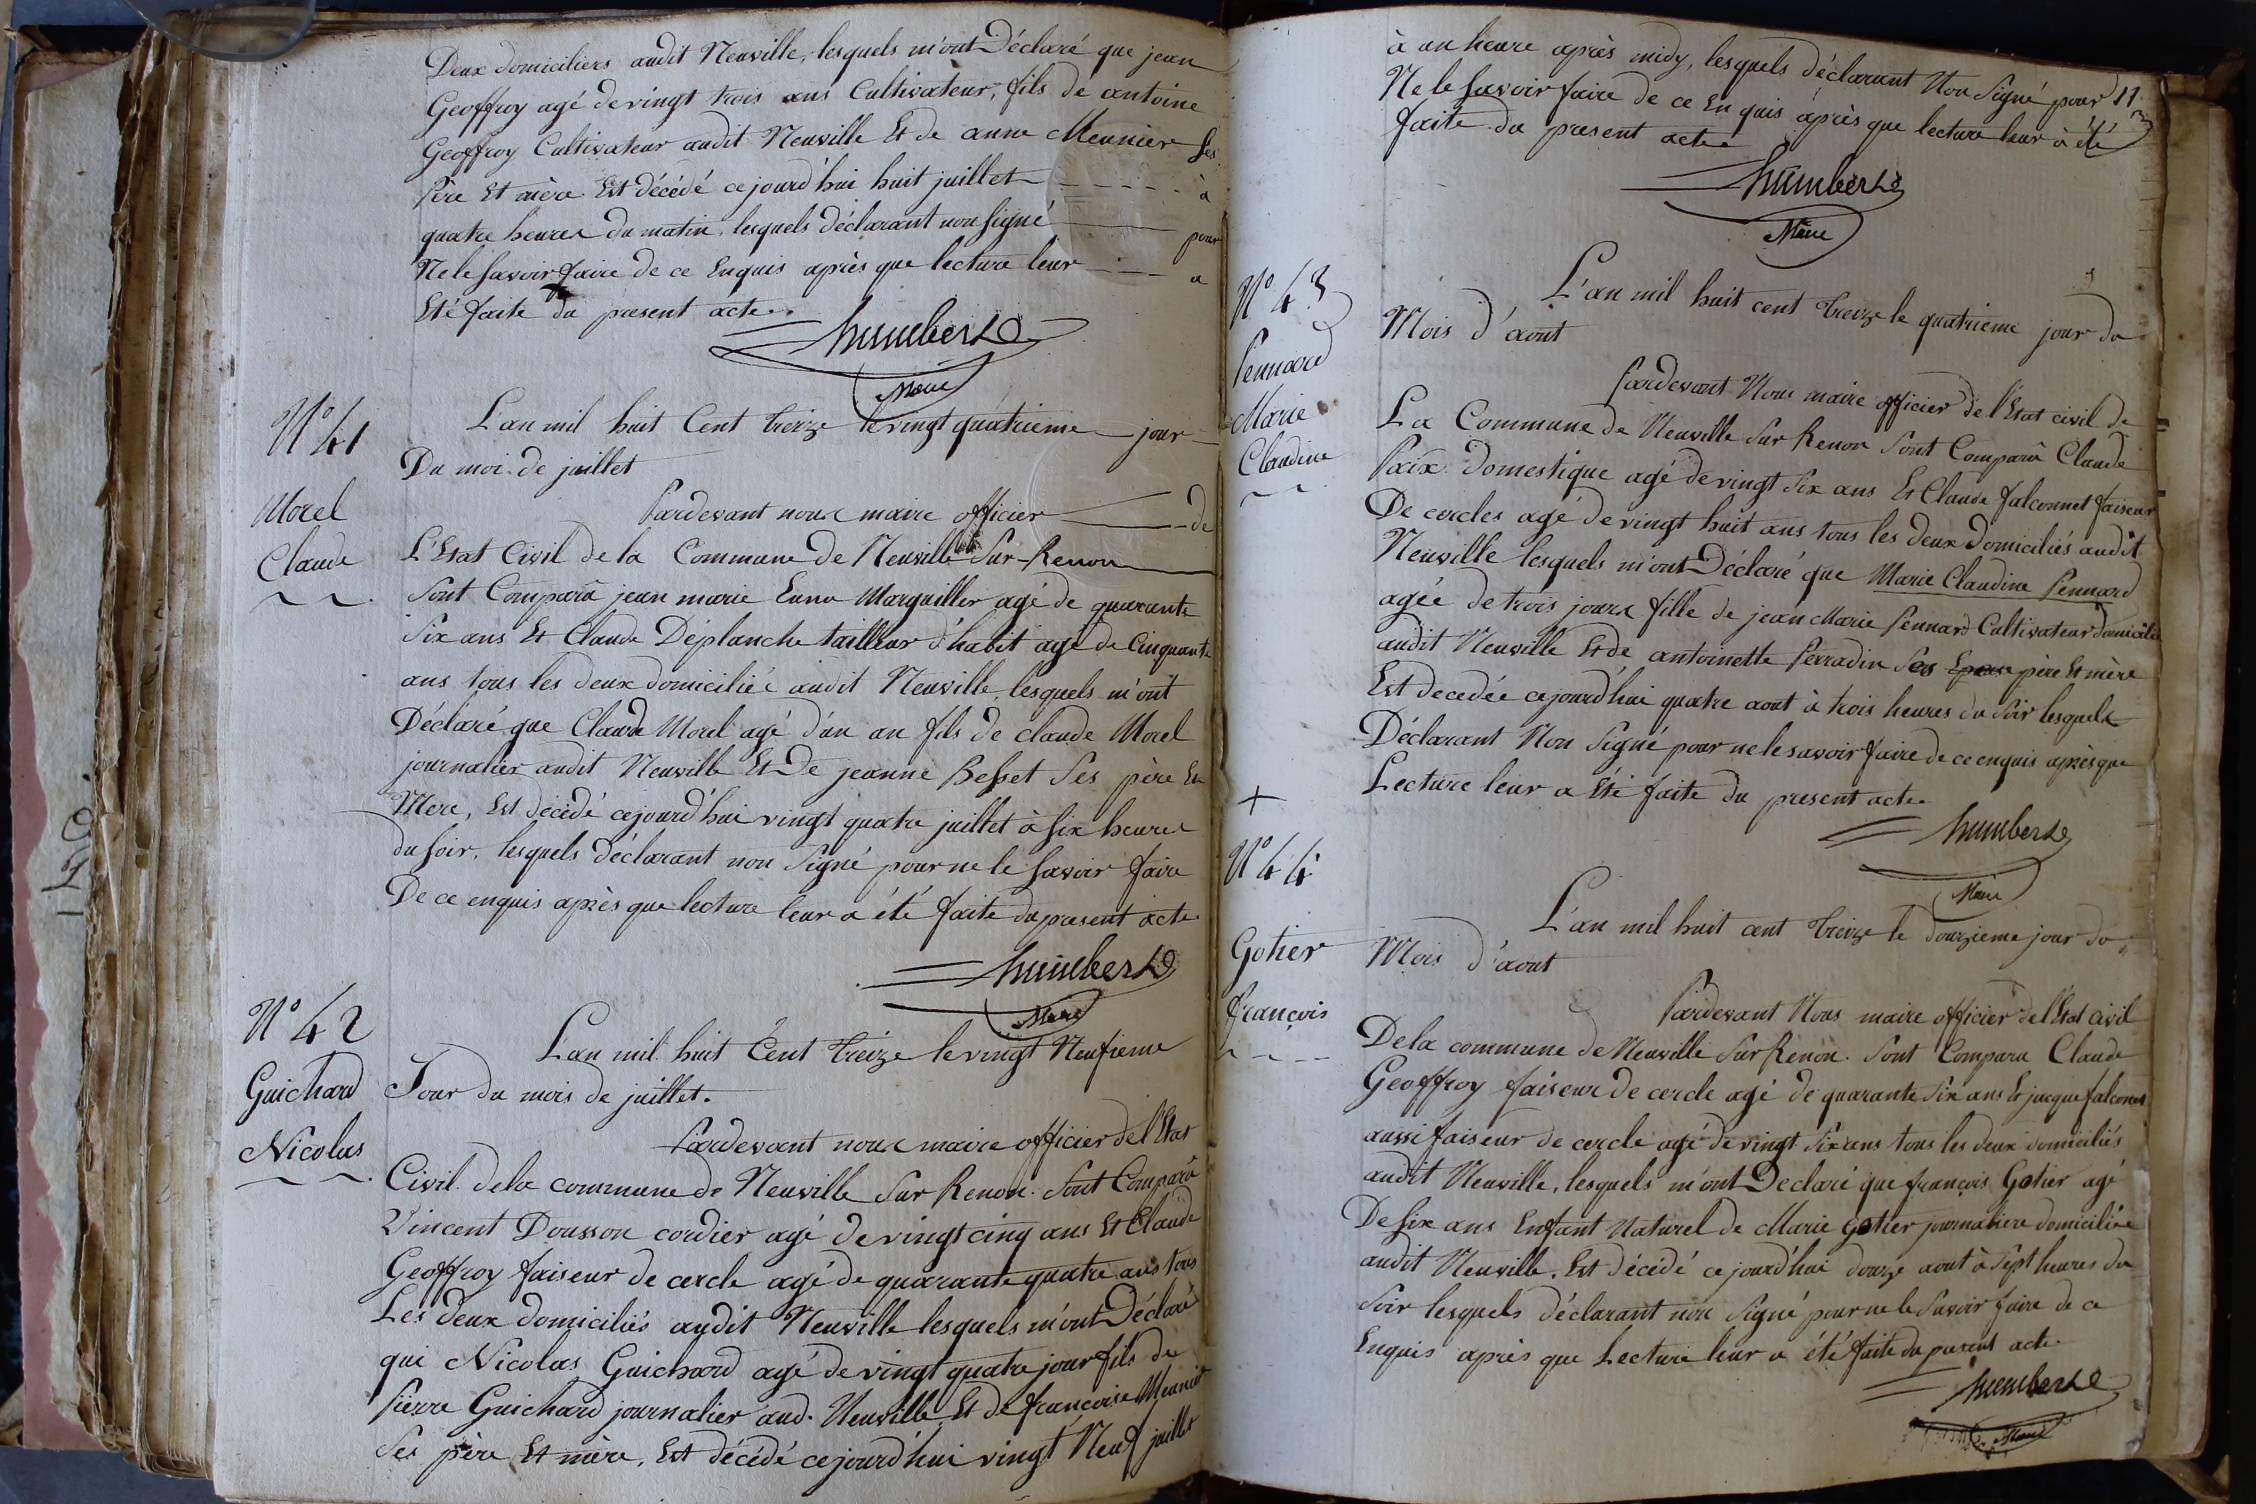 Deux domiciliers audit Neuville, lesquels m'ont Déclaré que jean
Geoffroy agé de vingt trois ans Cultivateur, fils de antoine
Geoffroy Cultivateur audit Neuville Et de anne Meunier ses
Père Et mère Est décédé cejourd'hui huit juillet - - - - - à
quatre heures du matin, lesquels déclarant non signé pour
Ne le savoir faire de ce Enquis après que lecture leur a
Eté faite du present acte.
humbert
Maire
N° 41
Morel
Claude
L'an mil huit Cent treize le vingt quatrieme jour
Du moi de juillet
Pardevant nous maire officier de
L'Etat Civil de la Commune de Neuville Sur-Renon
Sont Comparû jean marie Marguiller agé de quarante
Six ans Et Claude Déplanche tailleur d'habit agé de Cinquante
ans tous les deux domicilié audit Neuville, lesquels m'ont
Déclaré que Claude Morel agé d'un an fils de claude Morel
journalier audit Neuville Et De jeanne Besset Ses père Et
Mere, Est décédé cejourd'hui vingt quatre juillet à six heures
du soir, lesquels déclarant non signé pour ne le savoir faire
De ce enquis après que lecture leur a été faite du present acte
humbert
Maire
N° 42
Guichard
Nicolas
L'an mil huit Cent treize le vingt Neufieme
Jour du mois de juillet.
Pardevant nous maire officier de l'Etat
Civil de la commune de Neuville Sur Renon. Sont Comparû
Vincent Dousson cordier agé de vingt cinq ans Et Claude
Geoffroy faiseur de cercle agé de quarante quatre ans tous
Les deux domiciliés audit Neuville lesquels m'ont Déclaré
qui Nicolas Guichard agé de vingt quatre jour fils de
Pierre Guichard journalier aud. Neuville Et de françoise Meunier
Ses père Et mère, Est décédé cejourd'hui vingt Neuf juillet
à un heure après midy, lesquels déclarant Non Signé pour
11
Ne le Savoir faire de ce Enquis après que lecture leur à été
faite du present acte
humbert
Maire
N° 43
Pennard
Marie
Claudine
L'an mil huit cent treize le quatrieme jour du
Mois d'aout
Pardevant Nous maire officier de l'Etat civil de
La Commune de Neuville Sur Renon Sont Comparû Claude
Paix domestique agé de vingt six ans Et Claude falconnet faiseur
De cercles agé de vingt huit ans tous les deux Domiciliés audit
Neuville lesquels m'ont Déclaré que Marie Claudine Pennard
agée de trois jours fille de jean Marie Pennard Cultivateur domicilié
audit Neuville Et de antoinette Perradin Ses père Et mère
Est decedée cejourd'hui quatre aout à trois heures du Soir lesquels
Déclarant Non Signé pour ne le savoir faire de ce enquis après que
Lecture leur a Eté faite du present acte
humbert
Maire
+
N° 44
Gotier
françois
L'an mil huit cent treize le douzieme jour du
Mois d'aout
Pardevant Nous maire officier de l'Etat civil
De la commune de Neuville Sur Renon. Sont Comparu Claude
Geoffroy faiseur de cercle agé de quarante Six ans Et jacque falconnet
aussi faiseur de cercle agé de vingt Six ans tous les deux domiciliés
audit Neuville, lesquels m'ont Declaré que françois Gotier agé
De six ans Enfant Naturel de Marie Gotier journaliere domiciliée
audit Neuville. Est décédé ce jourd'hui douze aout à Sept heures du
Soir lesquels déclarant non signé pour ne le Savoir faire de ce
Enquis après que Lecture leur a été faite du present acte
humbert
Maire